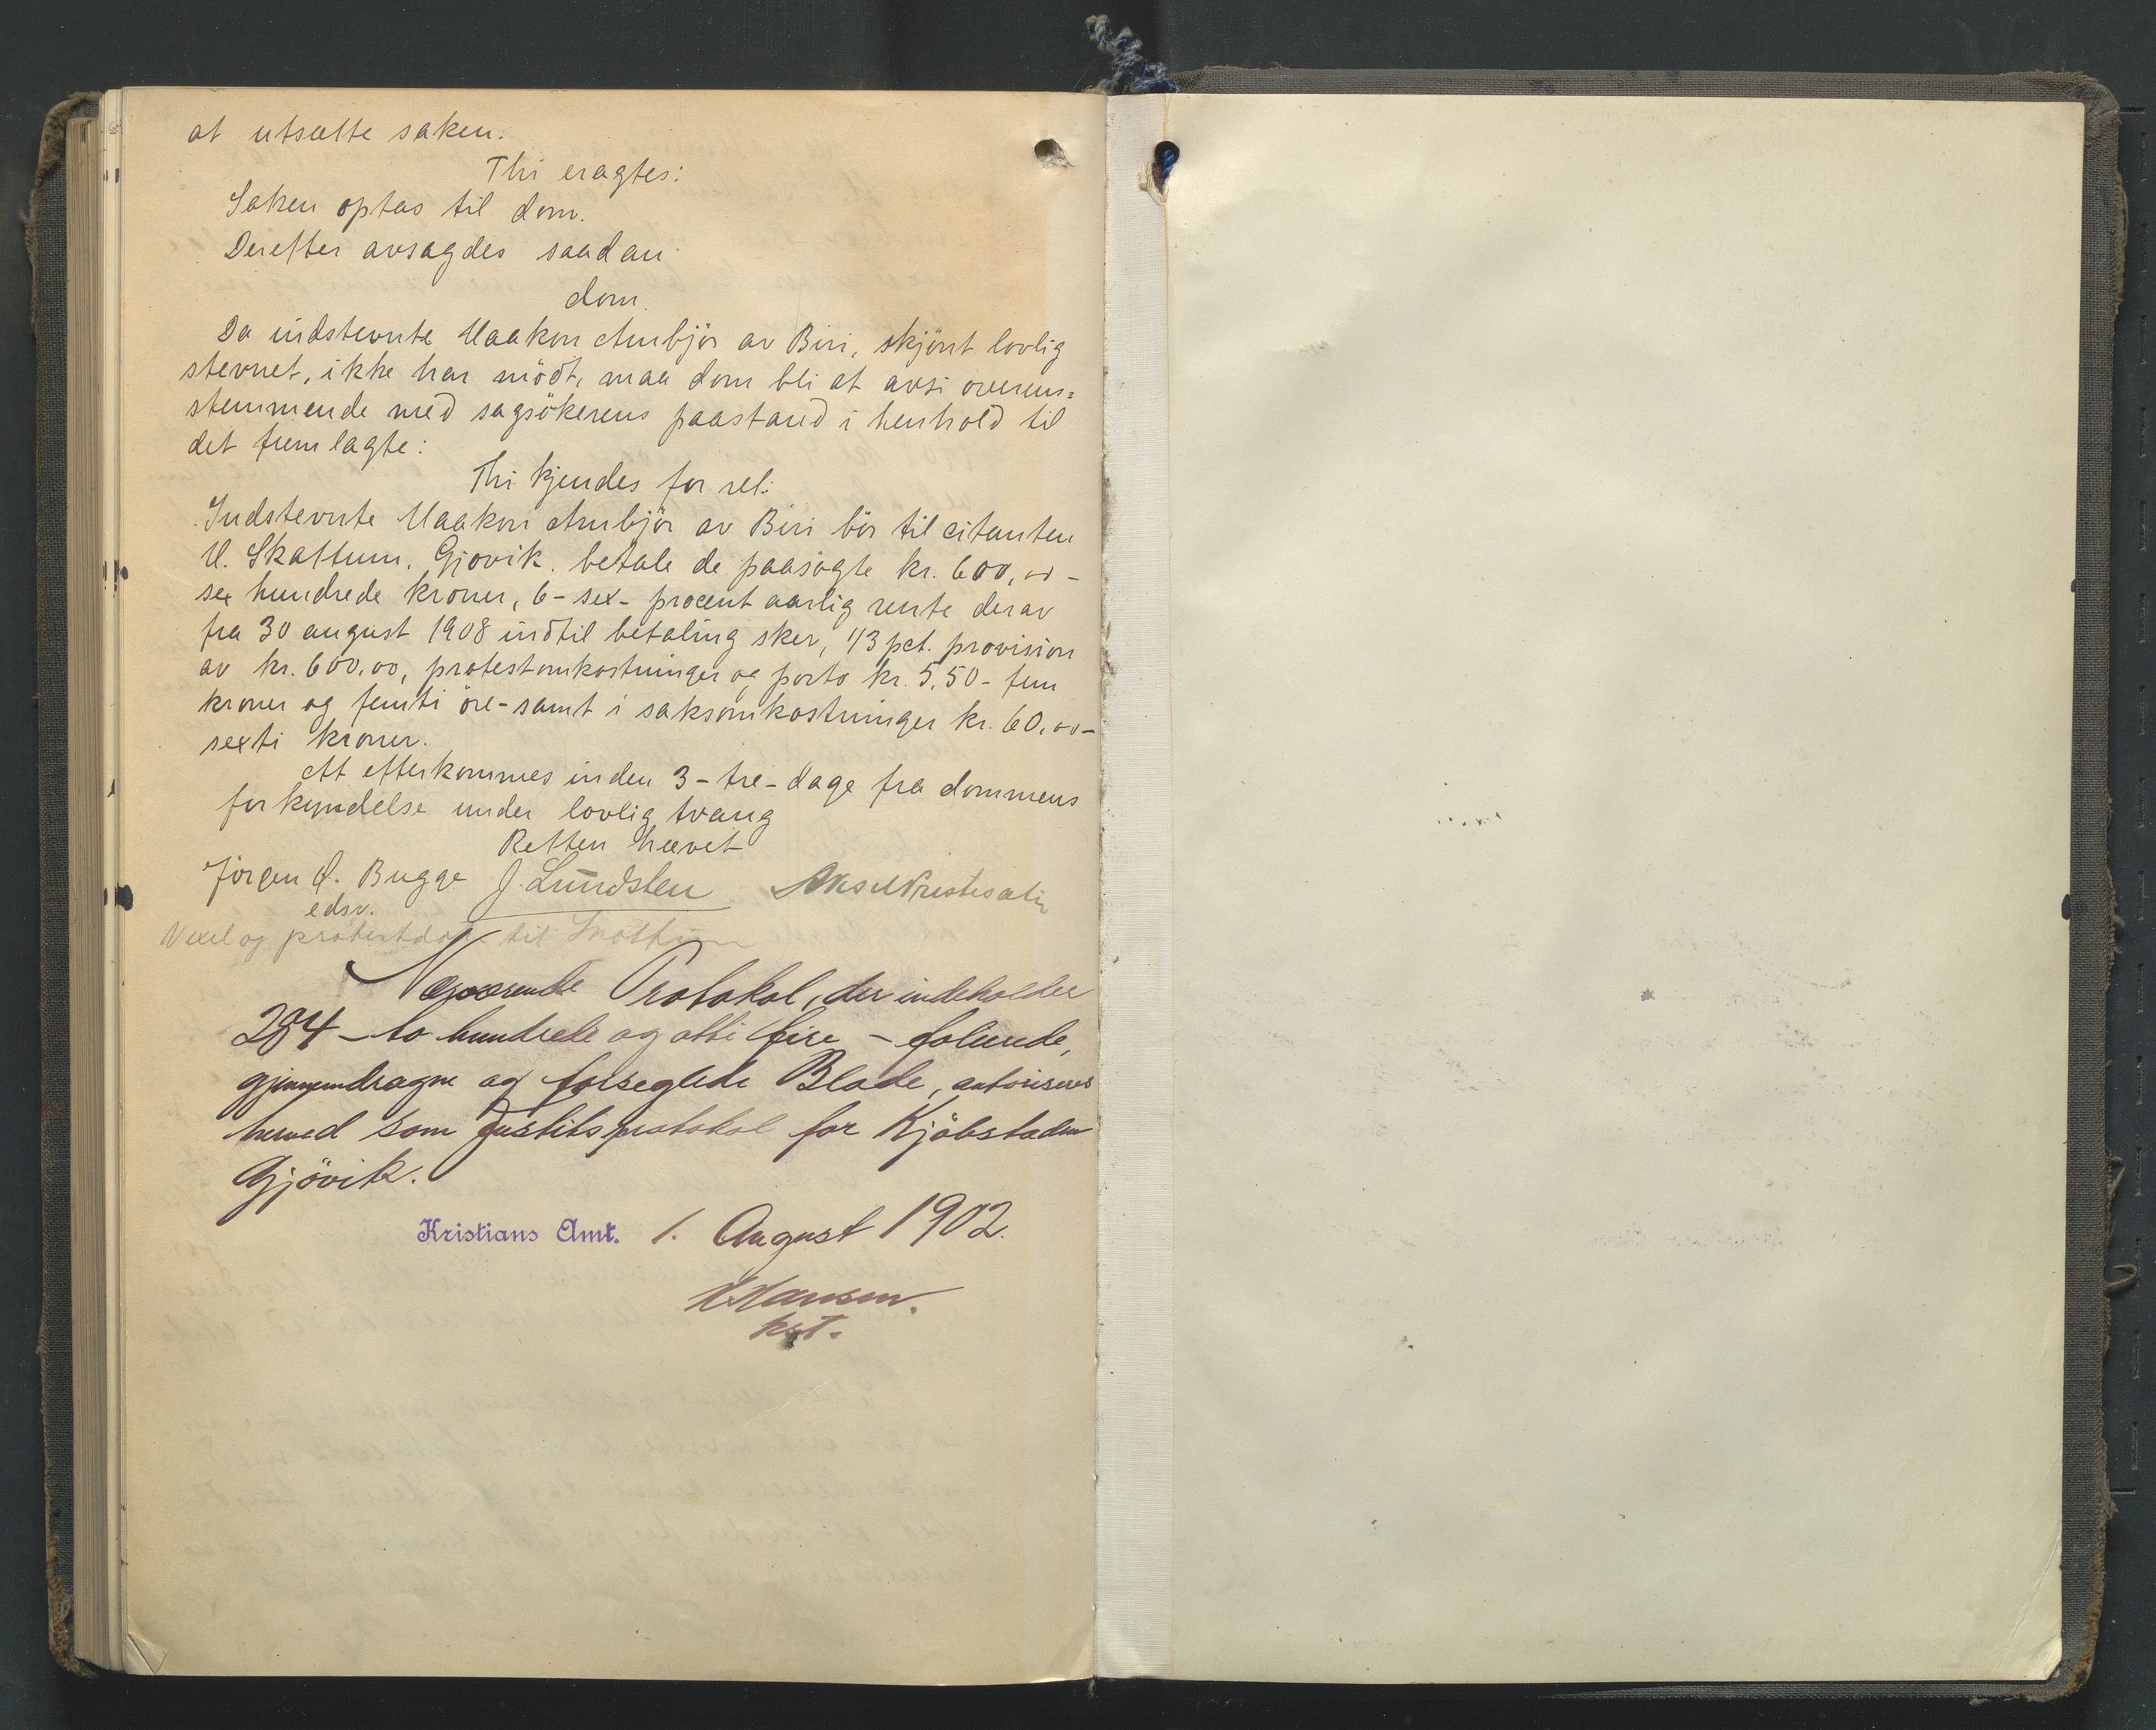 at utsætte saken.
Thi eragtes:
Saken optas til dom.
Derefter avsagdes saadan
dom.
Da indstevnte Haakon Ambjör av Biri, skjönt lovlig
stevnet, ikke har mödt, maa dom bli at avsi overens=
stemmende med sagsökerens paastand i henhold til
det fremlagte:
Thi kjendes for ret:
Indstevnte Haakon Ambjör av Biri bör til citanten
H. Skattum, Gjövik, betale de paasögte kr. 600,00 -
sex hundrede kroner, 6 - sex - procent aarlig rente derav
fra 30 august 1908 indtil betaling sker, 1/3 pct. provision
av kr. 600,00, protestomkostninger og porto kr. 5,50 - fem
kroner og femti öre - samt i saksomkostninger kr. 60,00 -
sexti kroner.
At efterkommes inden 3 - tre - dage fra dommens
forkyndelse under lovlig tvang
Retten hævet
Jörgen Bugge J. Lundsten Aksel
edsv.
Vexel og protest til
Nærværende Protokol, der indeholder
284 - to hundrede og otti fire - folierede,
gjennemdragne og forseglede Blade, autoriseres
herved som Justitsprotokol for Kjöbstaden
Gjövik.
Kristians Amt. 1. August 1902.
H Hansen.
kst.